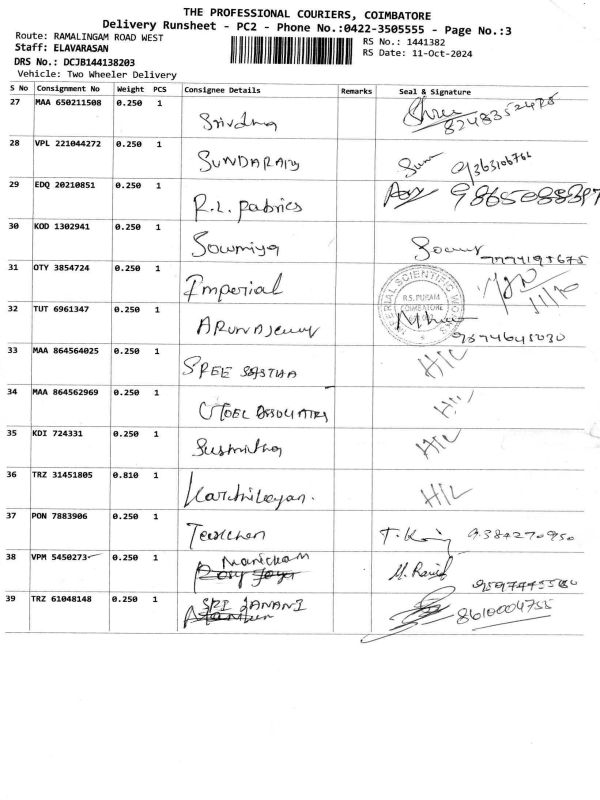 THE PROFESSIONAL COURIERS, COIMBATORE
Delivery Runsheet - PC2 - Phone No.:0422-3505555 - Page No.:3
Route: RAMALINGAM ROAD WEST
RS No.: 1441382
Staff: ELAVARASAN
RS Date: 11-Oct-2024
DRS No.: DCJB144138203
Vehicle: Two Wheeler Delivery
S No Consignment No Weight PCS Consignee Details Remarks Seal & Signature
27 MAA 650211508 0.250 1 Srividhya 8248352475
28 VPL 221044272 0.250 1 SUNDARAM 9363106766
29 EDQ 20210851 0.250 1 R.L. Fabrics
30 KOD 1302941 0.250 1 Sowmiya
31 OTY 3854724 0.250 1 Imperial 11/10
R.S. PURAM
COIMBATORE
32 TUT 6961347 0.250 1
33 MAA 864564025 0.250 1 SREE SASTHA H/L
34 MAA 864562969 0.250 1 ASSOCIATES H/L
35 KDI 724331 0.250 1 Susmitha H/L
36 TRZ 31451805 0.810 1 Karthikeyan. H/L
37 PON 7883906 0.250 1 9384270950
38 VPM 5450273 0.250 1 Manickam
39 TRZ 61048148 0.250 1 SRI JANANI 8610004755